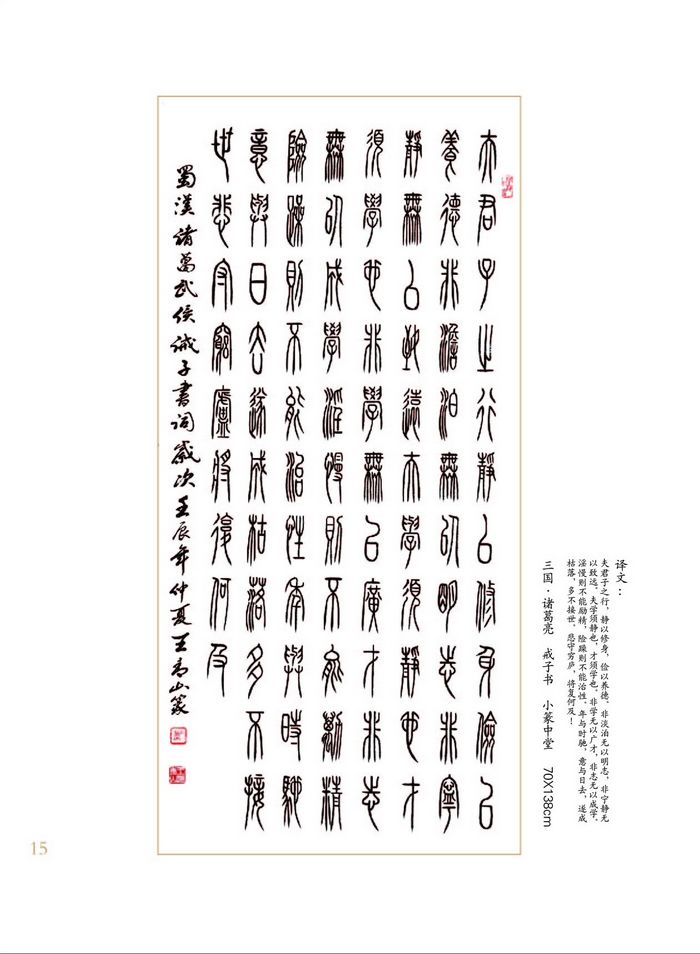 夫君子之行靜以修身儉以
養德非澹泊無以明志非寧
靜無以致遠夫學須靜也才
須學也非學無以廣才非志
無以成學淫慢則不能勵精
險躁則不能治性年與時馳
意與日去遂成枯落多不接
世悲守窮廬將復何及
蜀漢諸葛武侯誡子書词歲次壬辰年仲夏王山篆
译文：
夫君子之行，静以修身，俭以养德，非淡泊无以明志，非宁静无
以致远。夫学须静也，才须学也，非学无以广才，非志无以成学。
淫慢则不能励精，险躁则不能治性。年与时驰，意与日去，遂成
枯落，多不接世，悲守穷庐，将复何及！
三国·诸葛亮 戒子书 小篆中堂 70X138cm
15